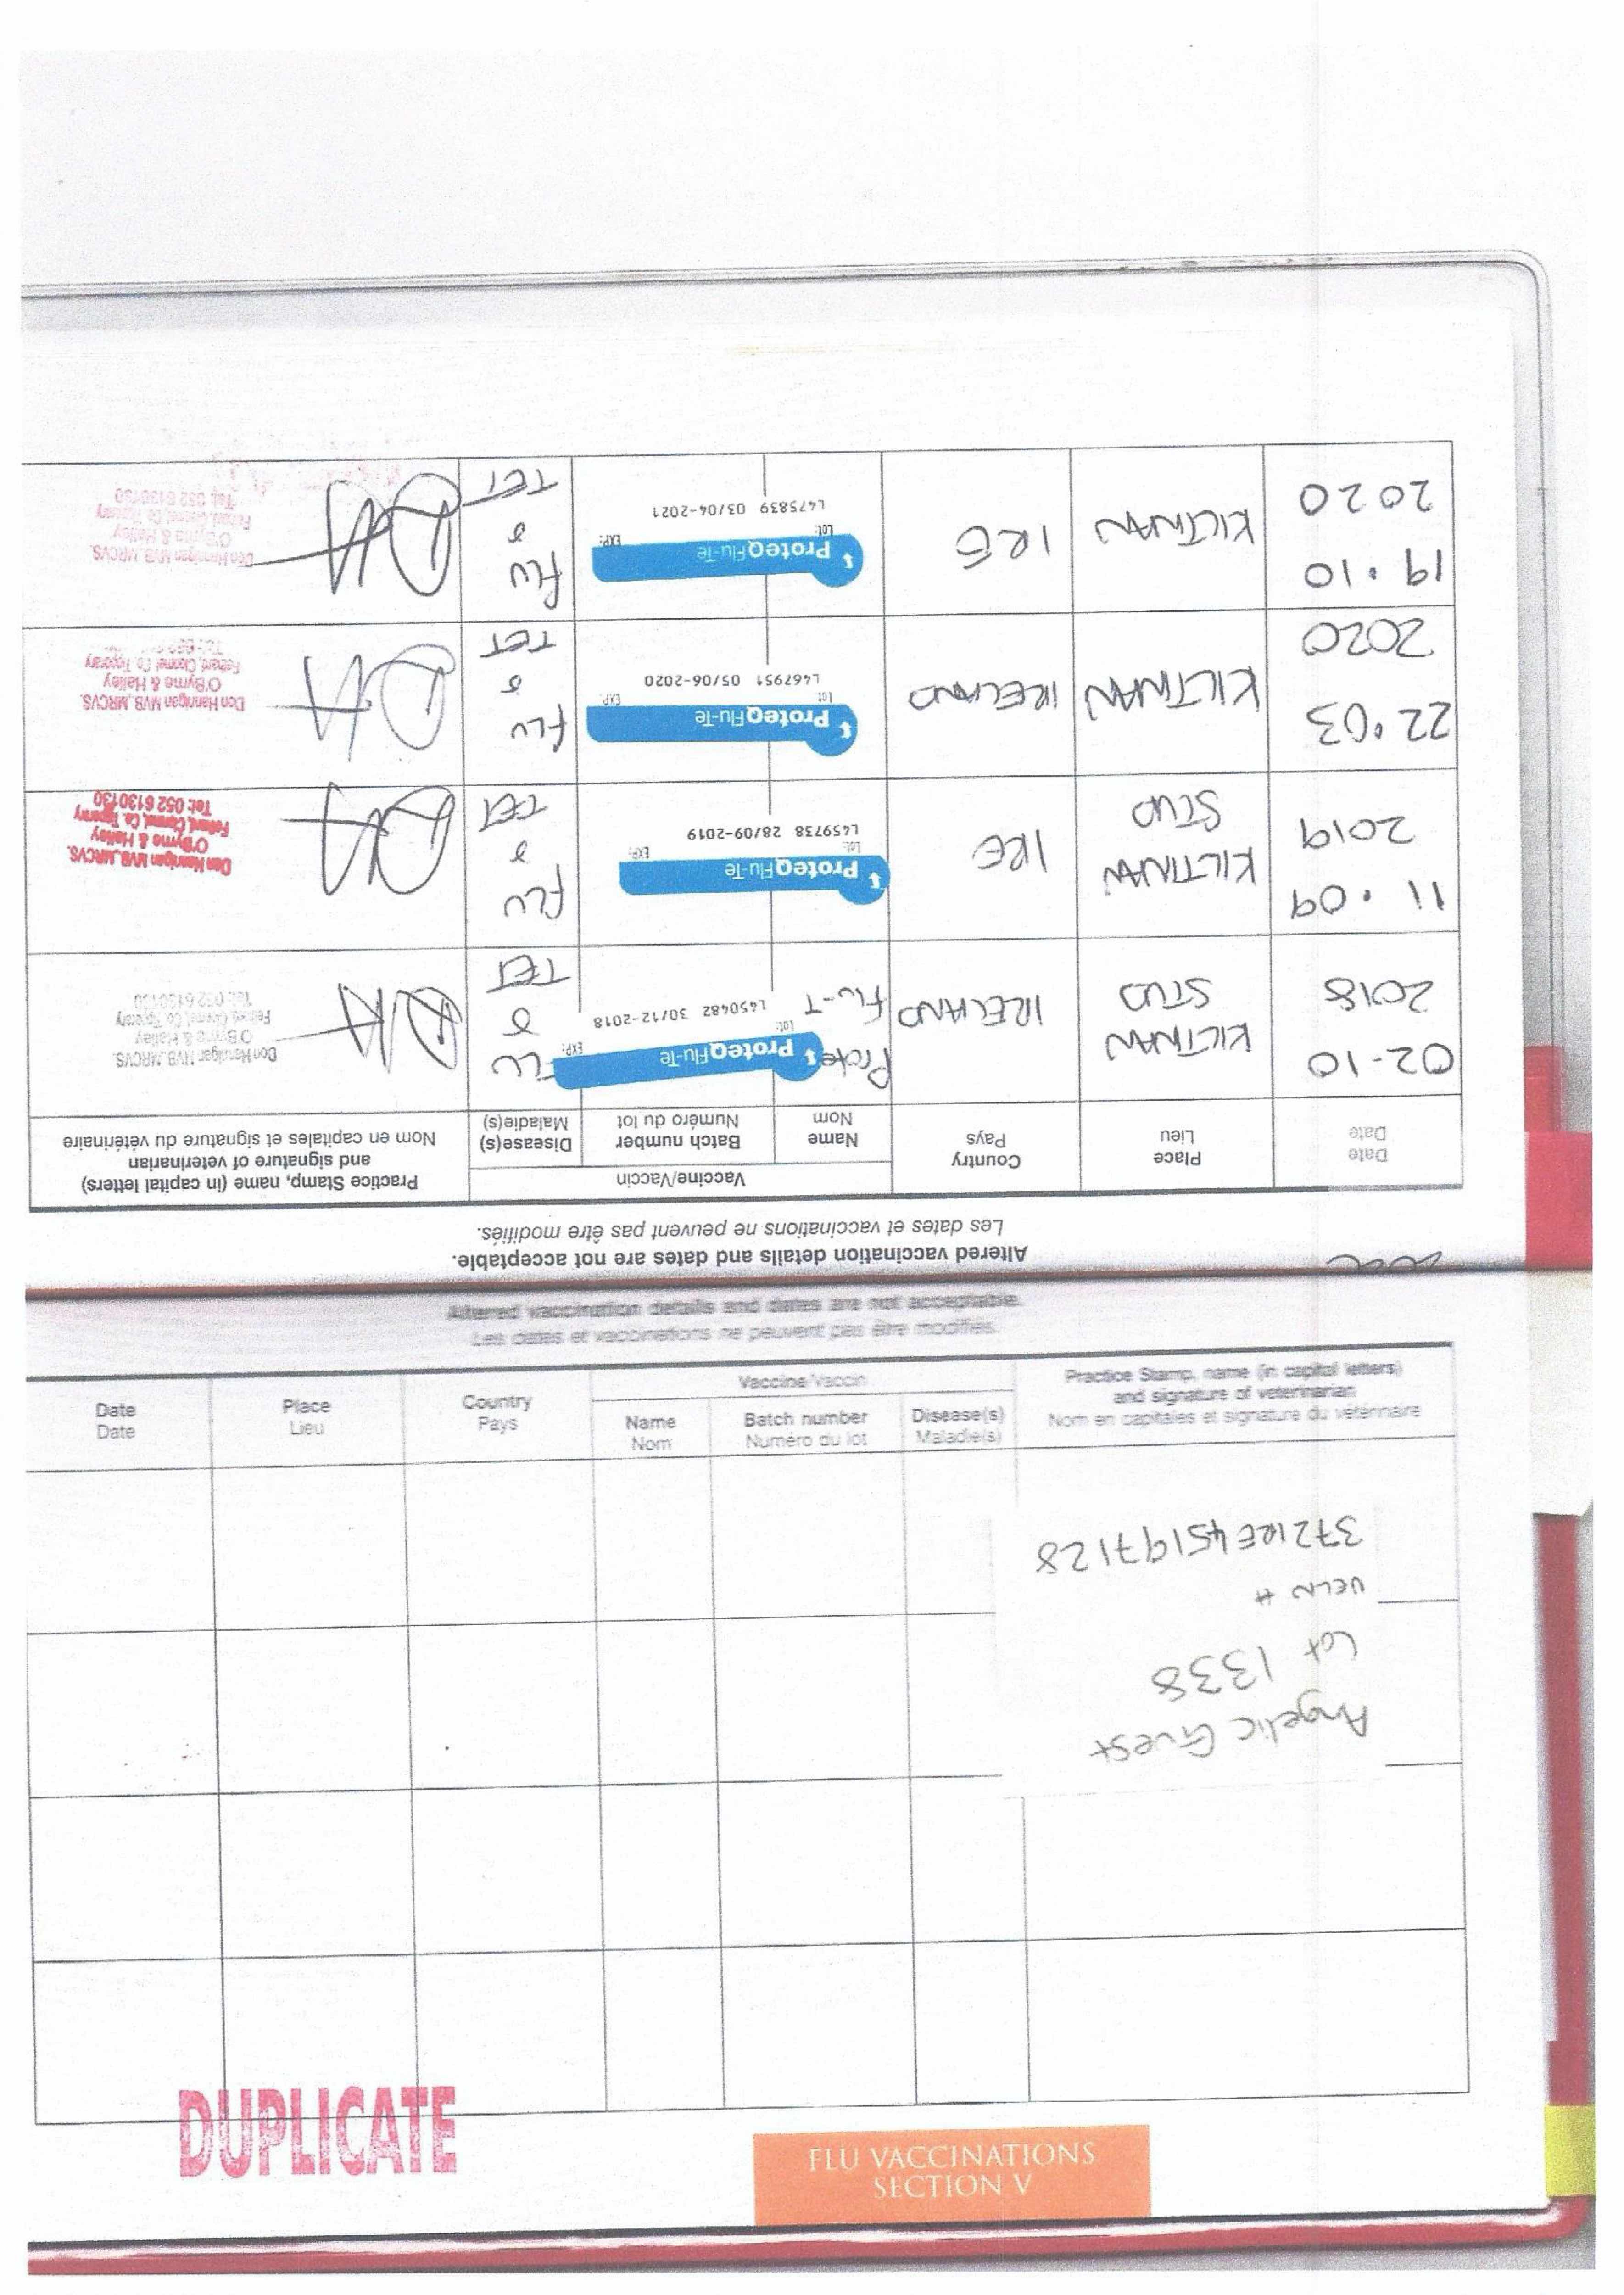 Altered vaccination details and dates are not acceptable.
Les dates et vaccinations ne peuvent pas être modifiés.
Date
Date
Place
Lieu
Country
Pays
Vaccine/Vaccin
Name
Nom
Batch number
Numéro du lot
Disease(s)
Maladie(s)
Practice Stamp, name (in capital letters)
and signature of veterinarian
Nom en capitales et signature du vétérinaire
02-10
2018
KILTINAN
STUD
IRELAND
Prote
Flu-T
ProteqFlu-Te
Lot:
EXP:
L450482 30/12-2018
FLU
&
TET
Don Hannigan MVB, MRCVS.
O'Byrne & Halley
Fethard, Clonmel, Co. Tipperary
Tel: 052 6130130
11.09
2019
KILTINAN
STUD
IRE
ProteqFlu-Te
Lot:
EXP:
L459738 28/09-2019
FLU
&
TET
Don Hannigan MVB, MRCVS.
O'Byrne & Halley
Fethard, Clonmel, Co. Tipperary
Tel: 052 6130130
22.03
2020
KILTINAN
IRELAND
ProteqFlu-Te
Lot:
EXP:
L467951 05/06-2020
FLU
&
TET
Don Hannigan MVB, MRCVS.
O'Byrne & Halley
Fethard, Clonmel, Co. Tipperary
19.10
2020
KILTINAN
IRE
ProteqFlu-Te
Lot:
EXP:
L475839 03/04-2021
FLU
&
TET
Don Hannigan MVB, MRCVS.
O'Byrne & Halley
Fethard, Clonmel, Co. Tipperary
Tel: 052 6130130
Altered vaccination details and dates are not acceptable.
Les dates et vaccinations ne peuvent pas être modifiés.
Date
Date
Place
Lieu
Country
Pays
Vaccine/Vaccin
Name
Nom
Batch number
Numéro du lot
Disease(s)
Maladie(s)
Practice Stamp, name (in capital letters)
and signature of veterinarian
Nom en capitales et signature du vétérinaire
Angelic Guest
Lot 1338
UELN #
372IRE45197128
DUPLICATE
FLU VACCINATIONS
SECTION V